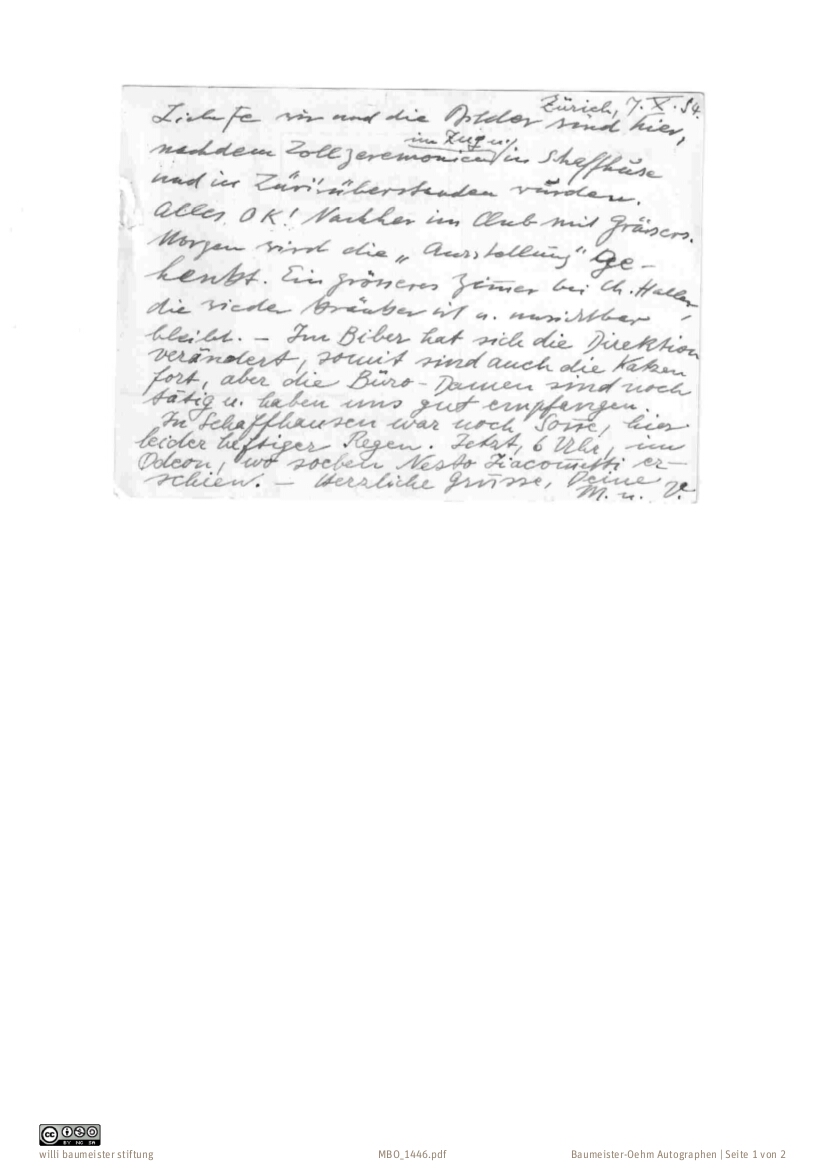 Zürich, 7.X.54.
Liebe Fe wir und die Bilder sind hier,
nachdem Zollzeremonien im Zug u. in Schaffhuse
und in Züri überstanden wurden.
Alles OK! Nachher im Club mit Gräsers.
Morgen wird die „Ausstellung" ge-
henkt. Ein grösseres Zimer bei Ch. Haller,
die wieder u. unsichtbar
bleibt. – Im Biber hat sich die Direktion
verändert, somit sind auch die Katzen
fort, aber die Büro-Damen sind noch
tätig u. haben uns gut empfangen.
In Schaffhausen war noch Sonne, hier
leider heftiger Regen. Jetzt, 6 Uhr, im
Odeon, wo soeben Nesto Jiacometti er-
schien. – Herzliche Grüsse, Deine
M. u. V.
CC BY NC SA
willi baumeister stiftung
MBO_1446.pdf
Baumeister-Oehm Autographen | Seite 1 von 2